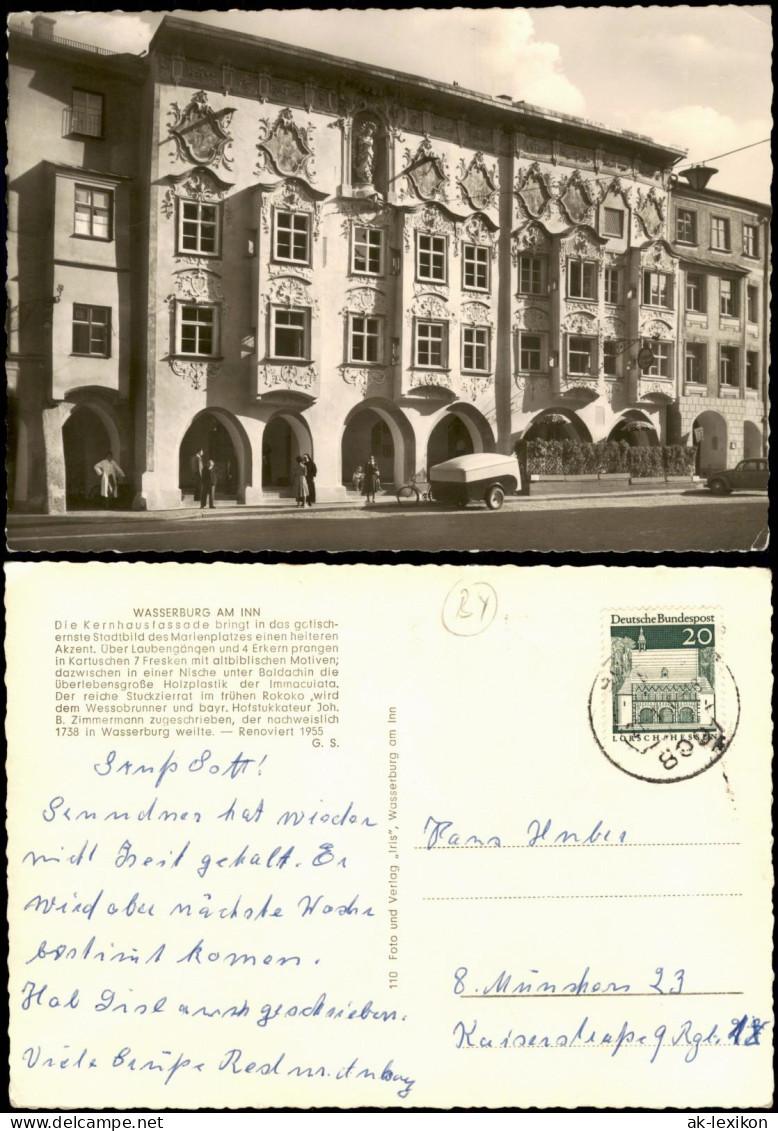 WASSERBURG AM INN
Die Kernhausfassade bringt in das gotisch-
ernste Stadtbild des Marienplatzes einen heiteren
Akzent. Über Laubengängen und 4 Erkern prangen
in Kartuschen 7 Fresken mit altbiblischen Motiven;
dazwischen in einer Nische unter Baldachin die
überlebensgroße Holzplastik der Immaculata.
Der reiche Stuckzierrat im frühen Rokoko wird
dem Wessobrunner und bayr. Hofstukkateur Joh.
B. Zimmermann zugeschrieben, der nachweislich
1738 in Wasserburg weilte. — Renoviert 1955
G. S.
Grüß Gott!
hat wieder
nicht Zeit gehabt. Er
wird aber nächste Woche
bestimmt komen.
Hab auch geschrieben.
Viele Grüße
110 Foto und Verlag „Iris", Wasserburg am Inn
BY
Deutsche Bundespost
20
LORSCH·HESSEN
Hans Huber
8. München 23
Kaiserstraße 9 Rgb.
- Die Welt der Sammler -
ak-lexikon.com